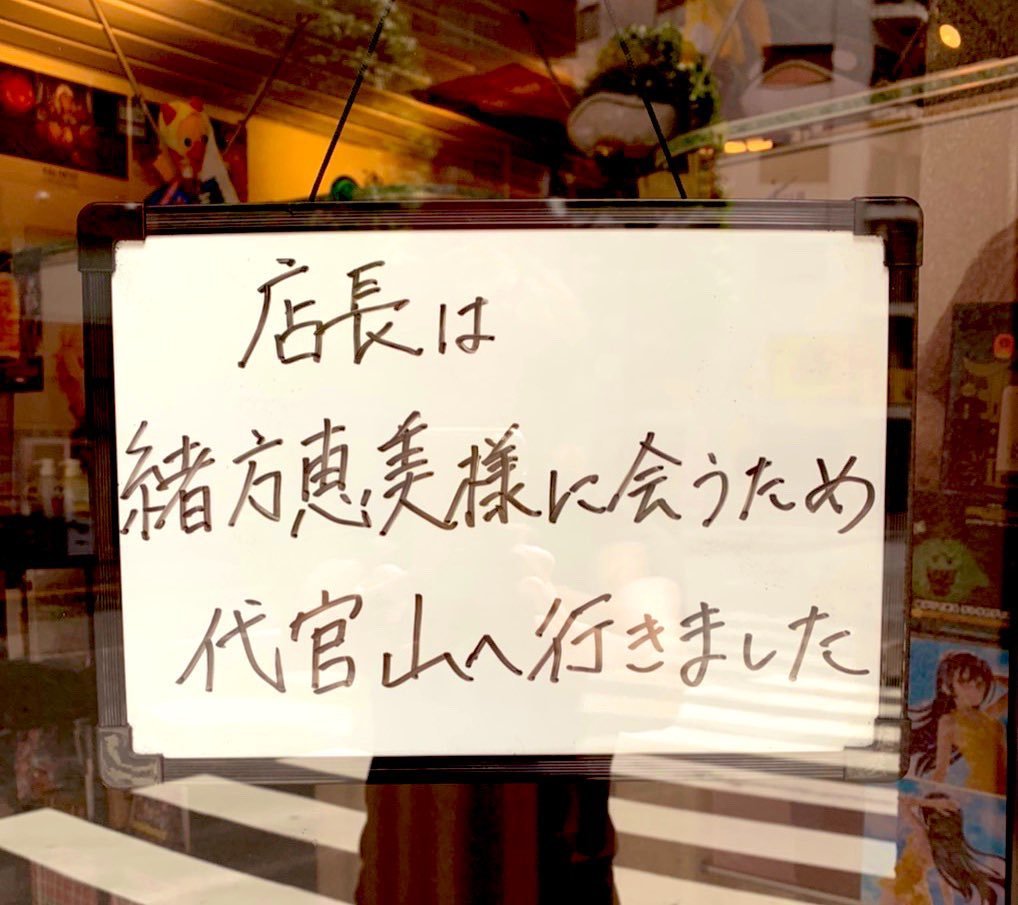 店長は
緒方恵美様に会うため
代官山へ行きました